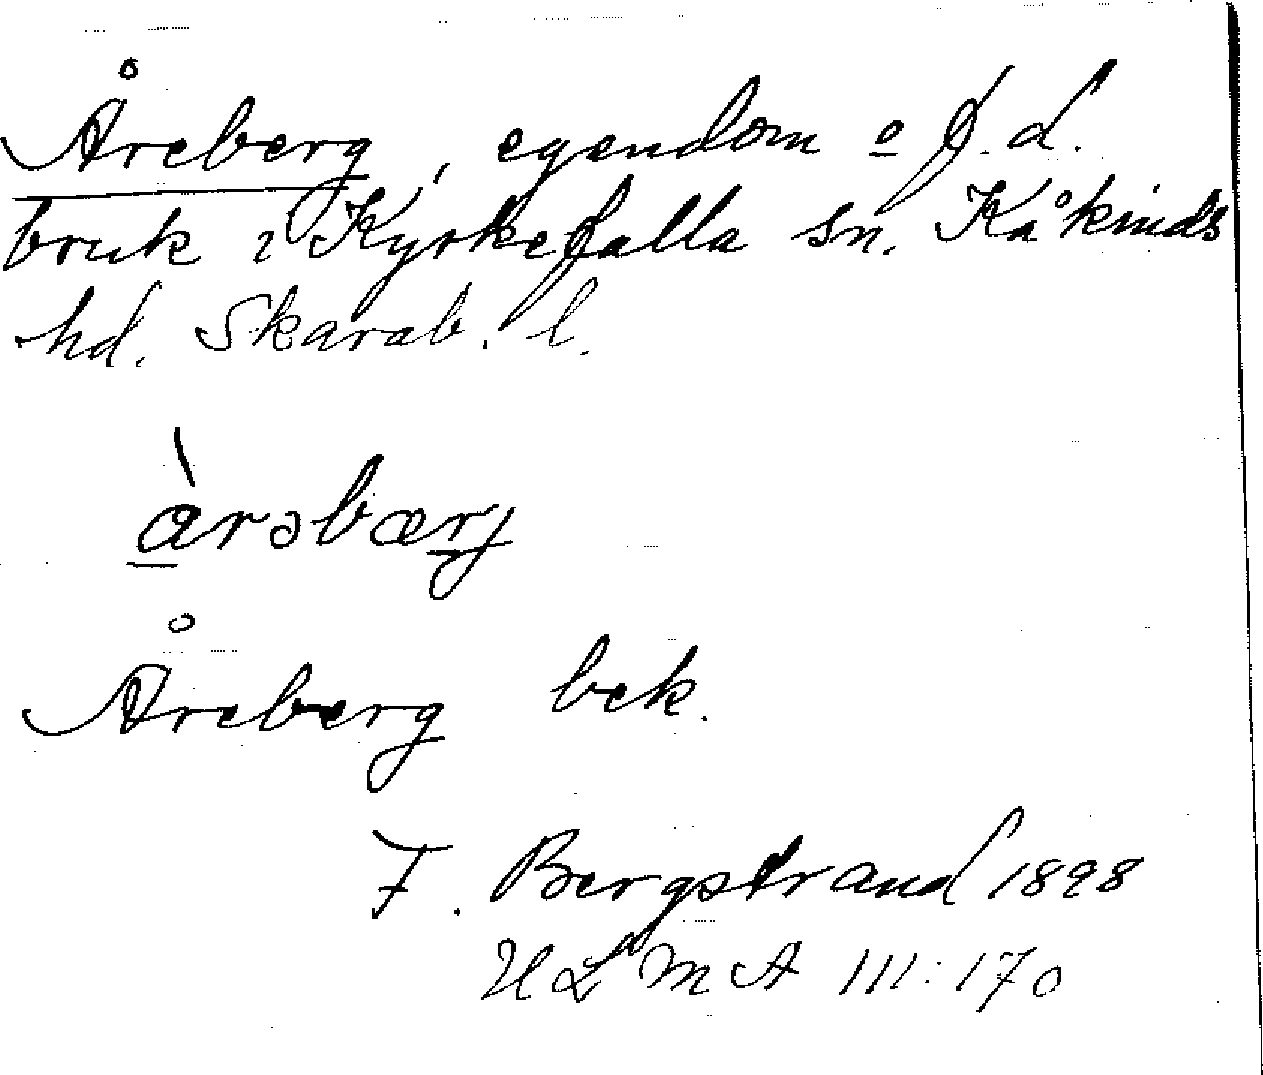 Åreberg, egendom o f.d.
bruk i Kyrkefalla sn. Kåkinds
hd. Skarab. l.
àrəbærj
Åreberg bek.
F. Bergstrand 1898
ULMA 111:170